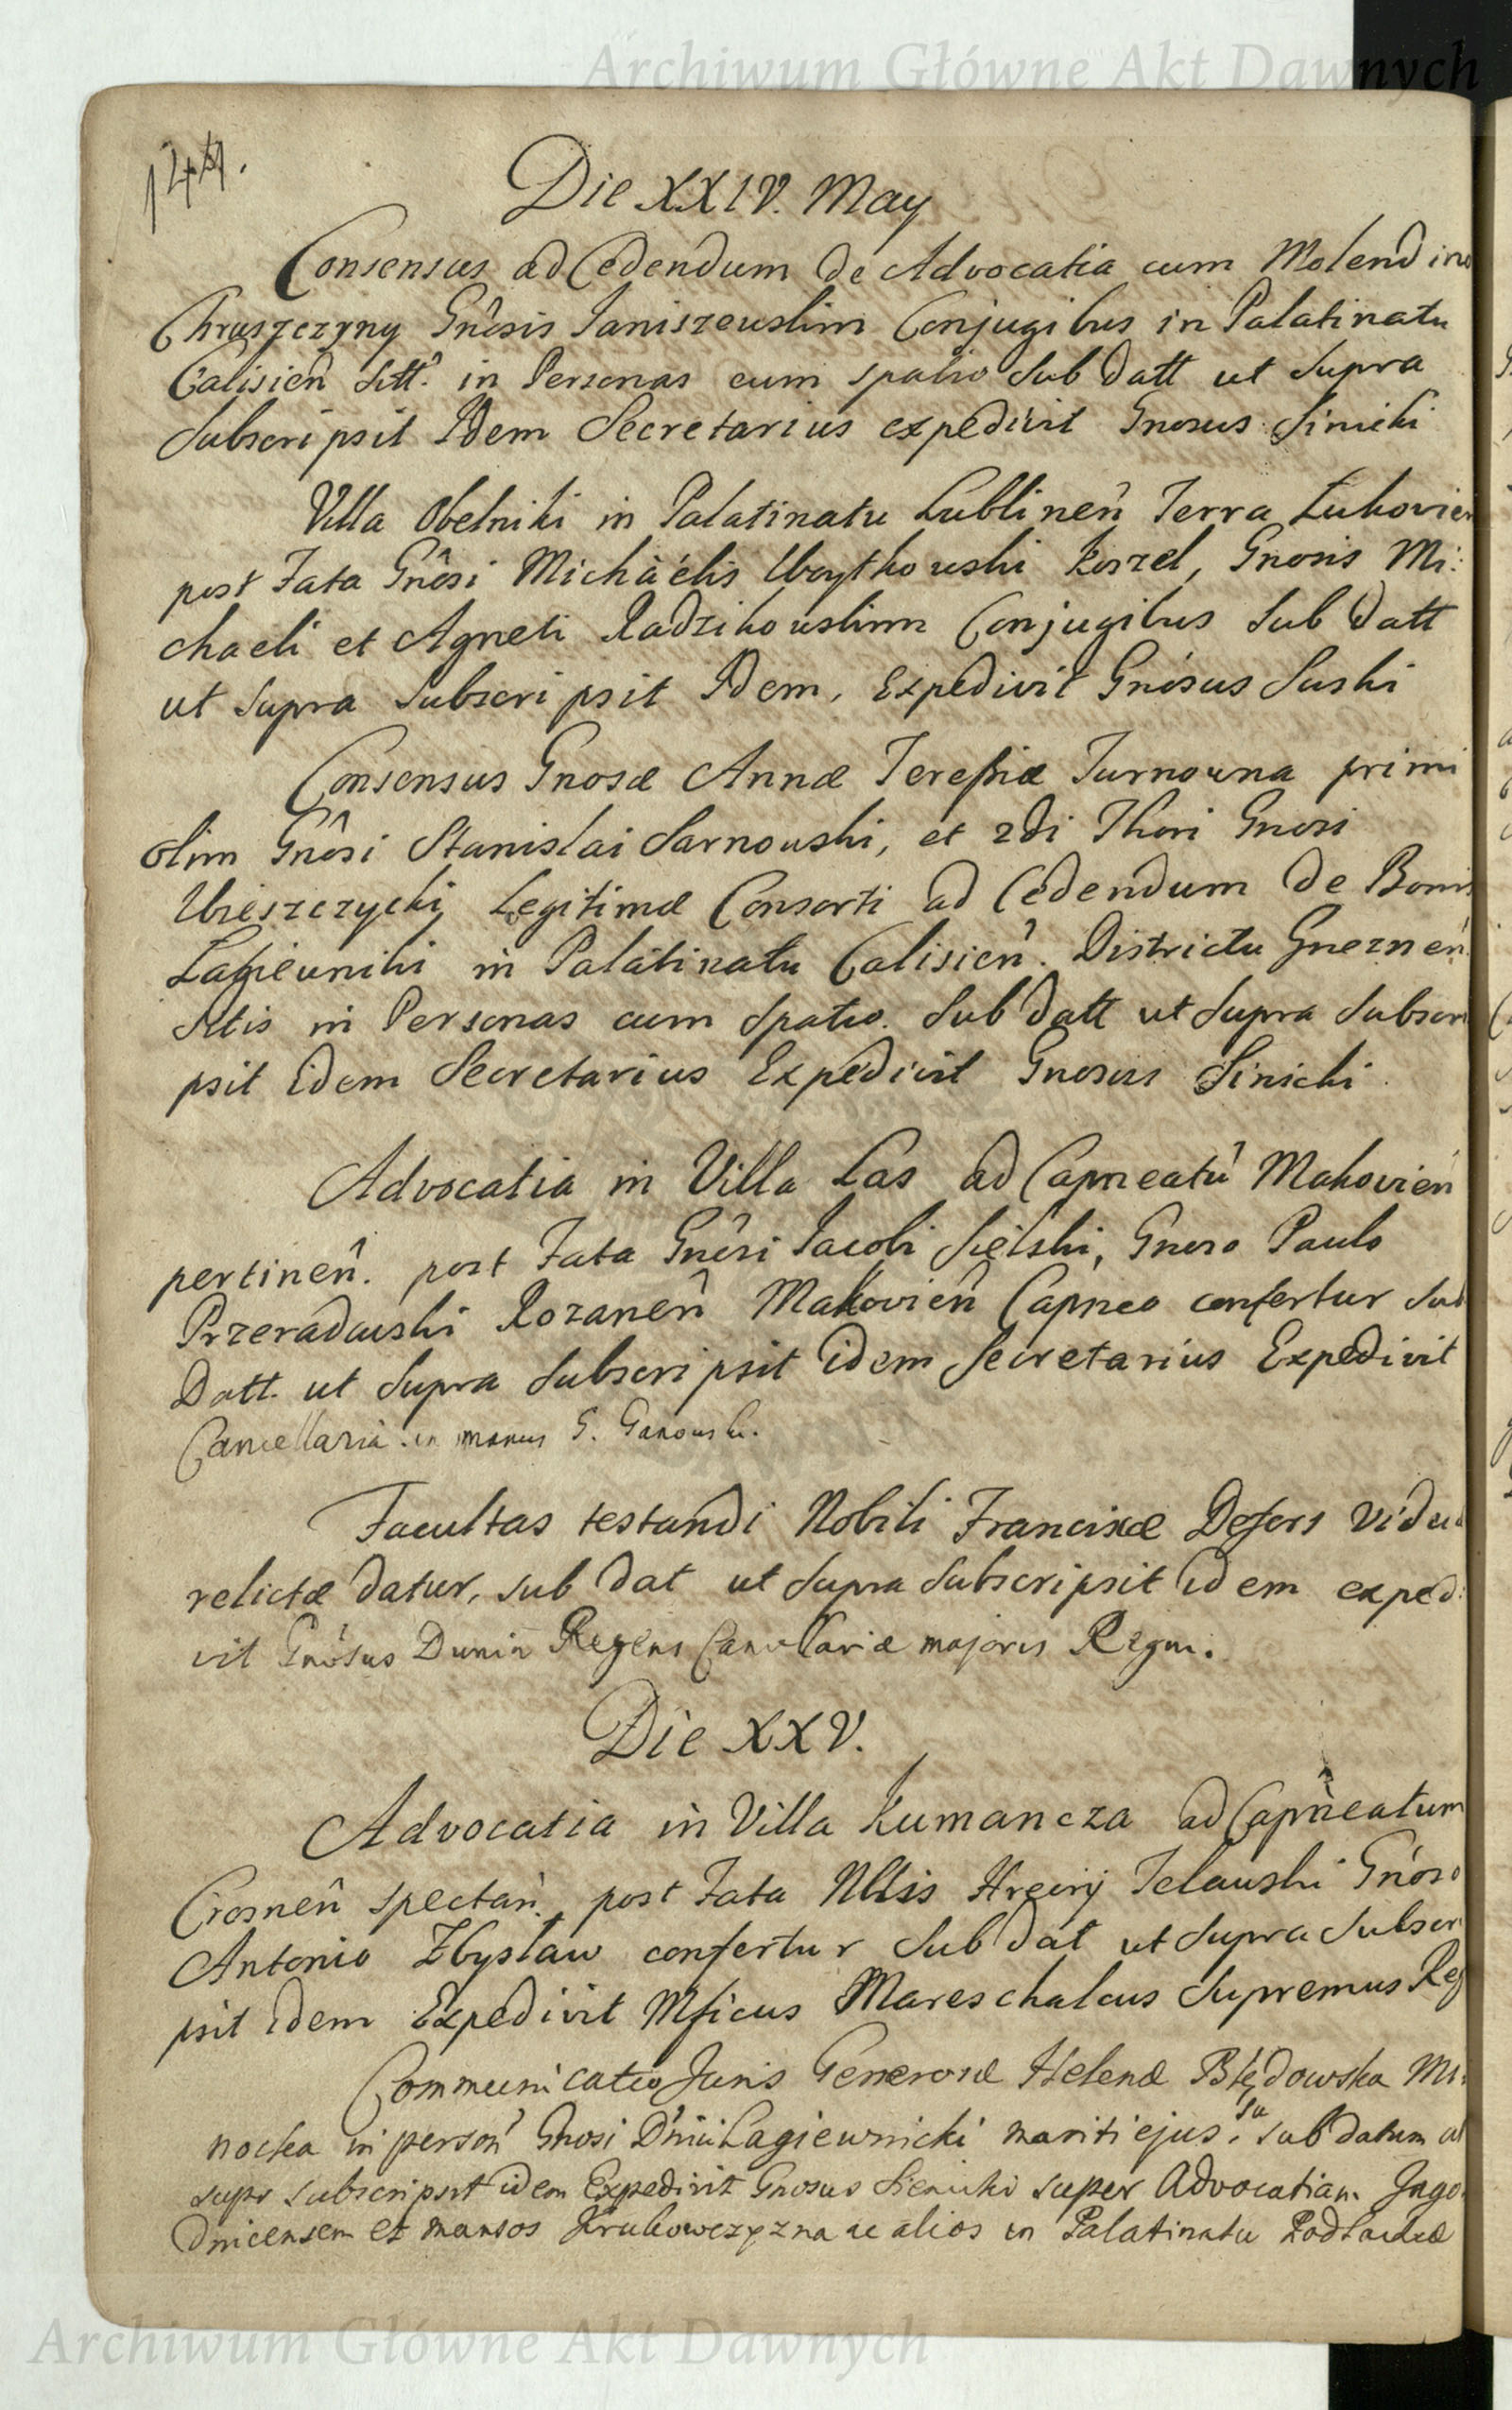 Archiwum Główne Akt Dawnych
144.
Die XXIV. May
Consensus ad Cedendum de Advocatia cum Molendino
Chruszczyny Gnôsis Janiszewskim Conjugibus in Palatinatu
Calisień sitt. in Personas cum spatio Sub Datt ut Supra
Subscripsit Idem Secretarius expedivit Gnosus Sinicki
Villa Obelniki in Palatinatu Lublineń Terra Łukovień
post Fata Gnôsi Michaëlis Woytkowski Koszel, Gnosis Mi:
chaeli et Agneti Radzikowskim Conjugibus Sub Datt
ut Supra Subscripsit Idem, Expedivit Gnosus Suski
Consensus Gnosæ Annæ Teresiæ Turnowna primi
olim Gnôsi Stanislai Sarnowski, et 2di Thori Gnosi
Wieszczycki Legitimæ Consorti ad Cedendum de Bonis
Łagiewniki in Palatinatu Calisień. Districtu Gnezneń
sitis in Personas cum Spatio. Sub Datt ut Supra Subscri
psit Idem Secretarius Expedivit Gnosus Sinicki.
Advocatia in Villa Las ad Capneatû Makovień
pertineń. post Fata Gnôsi Jacobi Sielski, Gnoso Paulo
Przeradowski Rozaneń Makovień Capneo confertur sub
Datt. ut Supra Subscripsit idem Secretarius Expedivit
Cancellaria in manus G. Ganowski.
Facultas testandi Nobili Franciscæ Defors Vidu
relictæ datur, sub dat ut Supra Subscripsit idem expedi
vit Gnôsus Dunin Regens Cancellariæ majoris Regni.
Die XXV.
Advocatia in Villa Kumancza ad Capneatum
Crosneń spectań. post Fata Nblis Hreory Telawski Gnoso
Antonio Zbysław confertur Sub dat ut Supra Subscri
psit Idem Expedivit Mficus Mareschalcus Supremus Reg
Communicatio Juris Generosæ Helenæ Błędowska Mi:
nocka in person Gnosi Dnii Łagiewnicki mariti ejus. sa sub datum ut
supr subscripsit idem Expedivit Gnosus Sienicki super Advocatiam Jago
dnicensem et mansos Krukowczyzna ac alios in Palatinatu Podlachiæ
Archiwum Główne Akt Dawnych